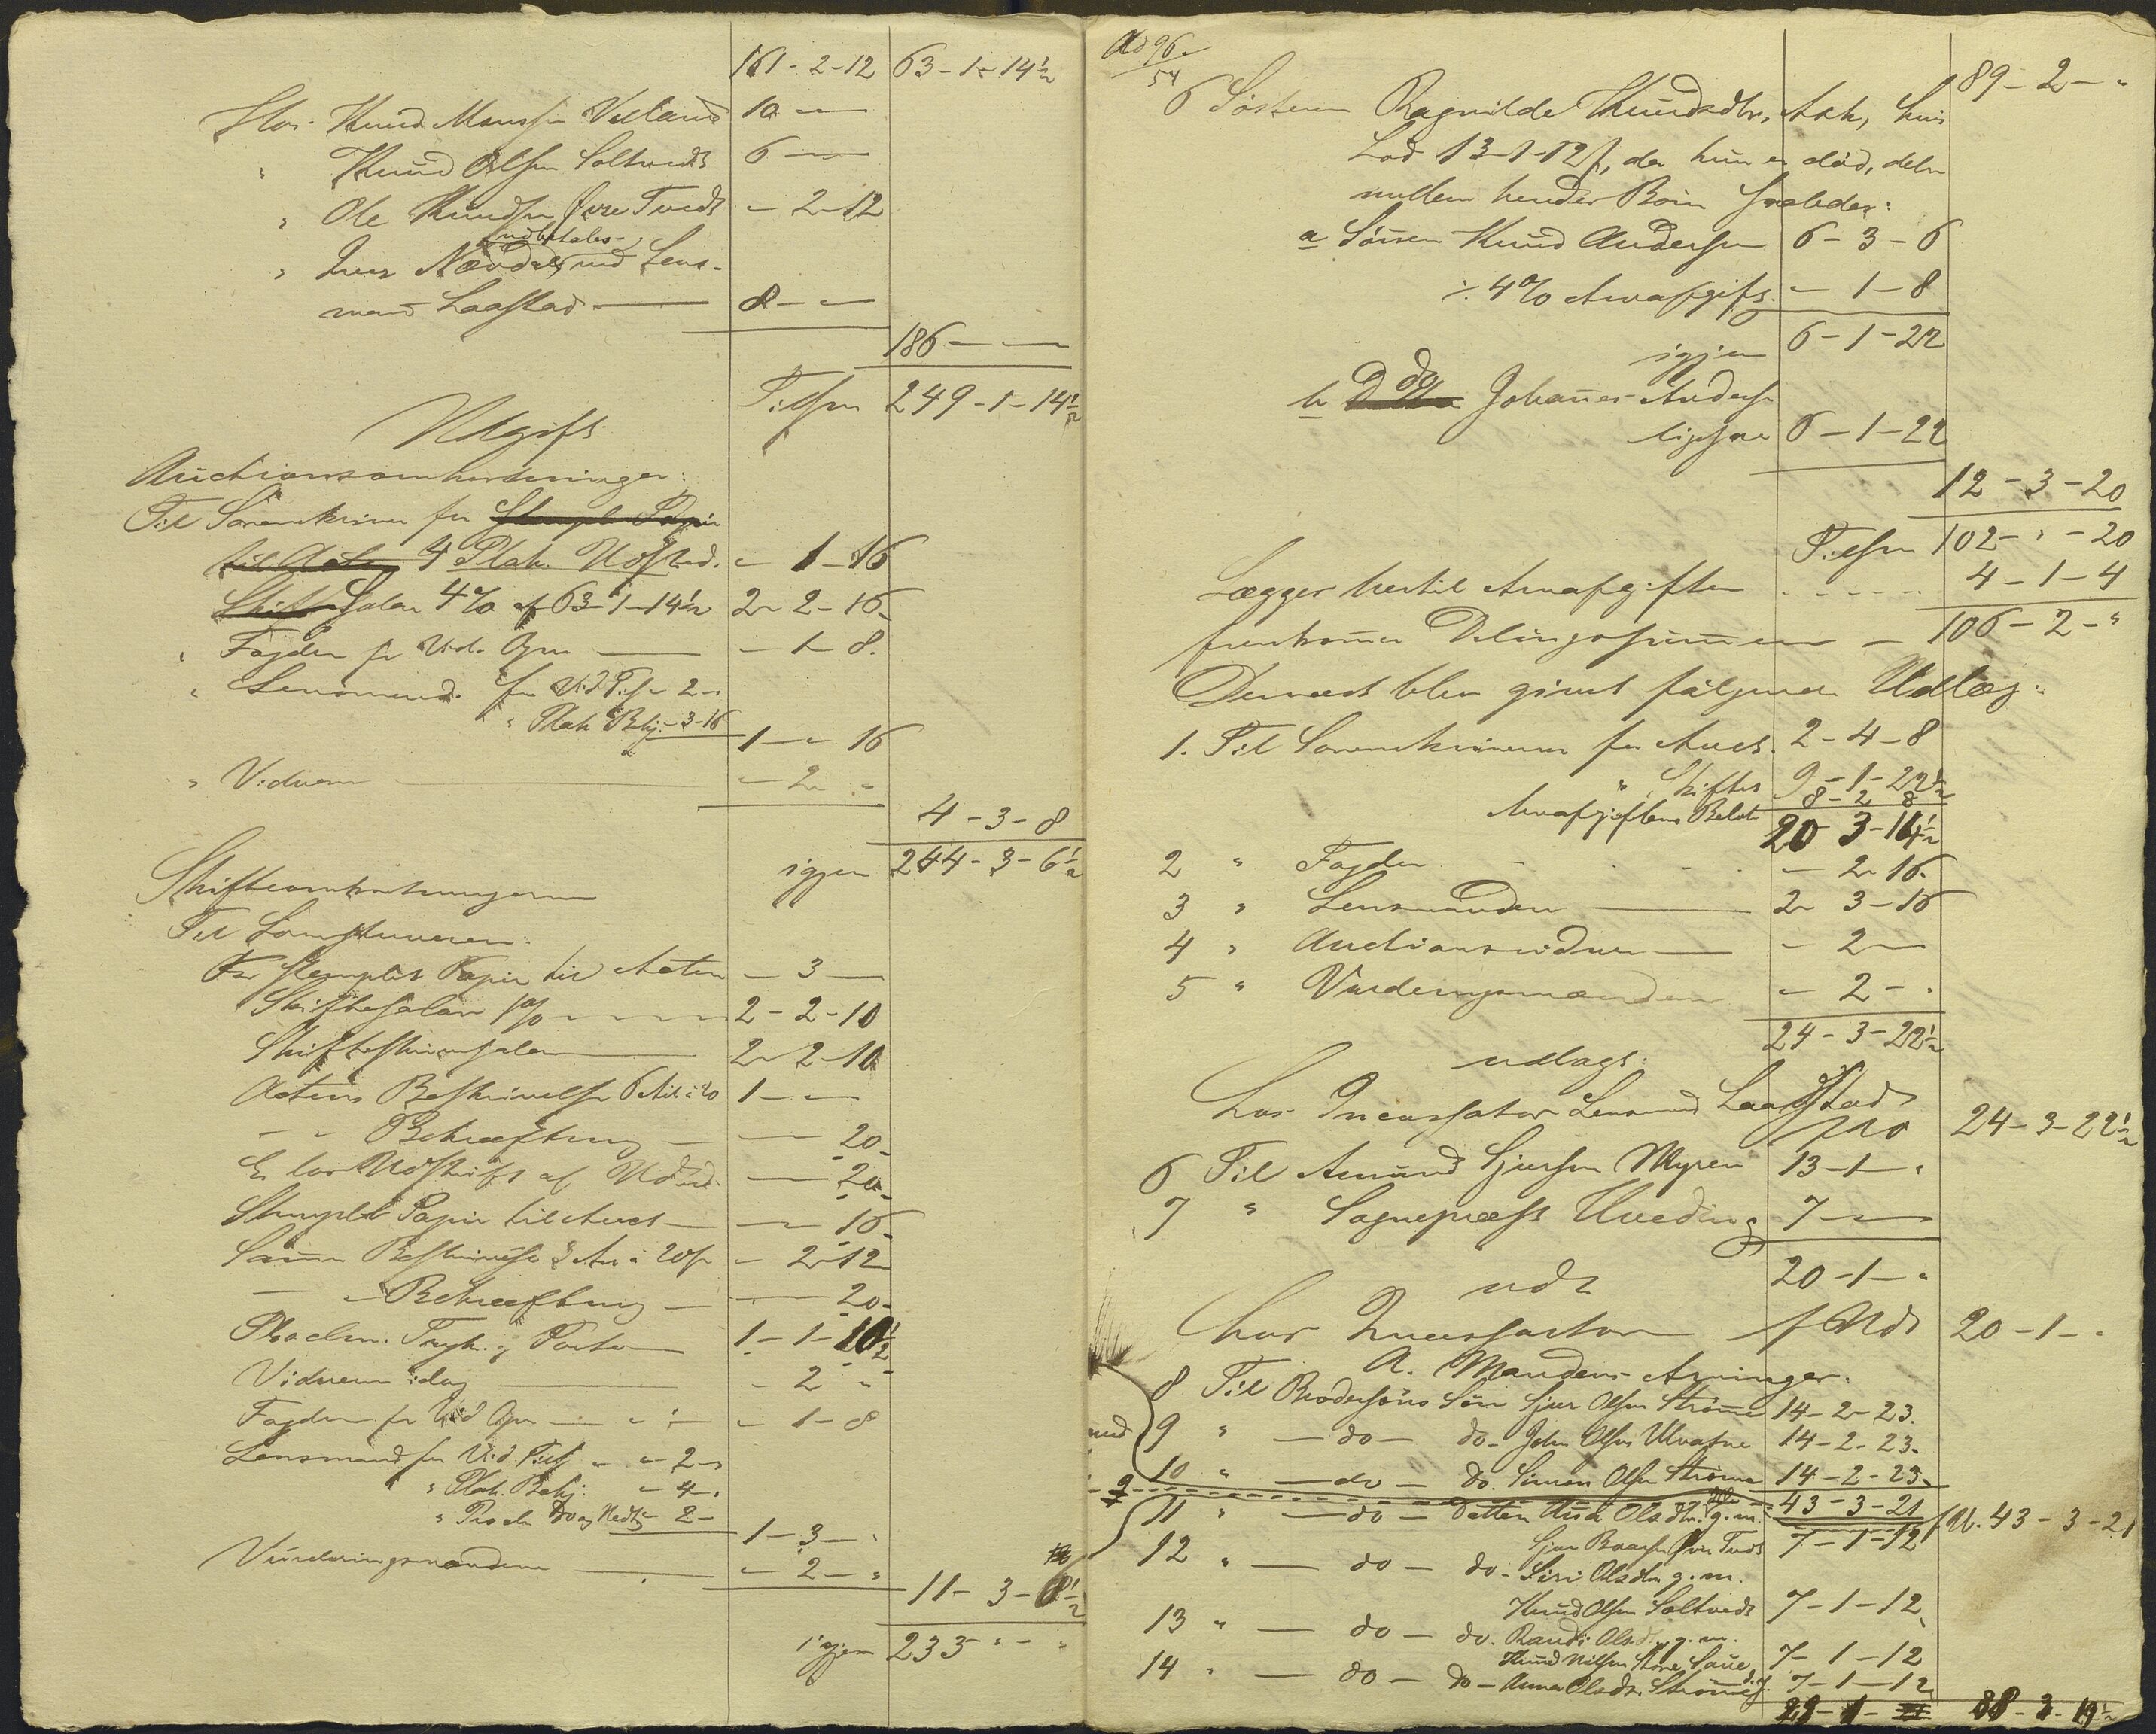 161 - 2 - 12 63 - 1 - 14½
Hos Knud Monssen Velland 10 - -
" Knud Olsen Soltvedt 6 - -
" Ole Knudsen Øvre Tvedt - 2 - 12
udbetales
" Iver Nævdal, ved Lens-
mand Laastad 8 - -
186 - -
Tilsm 249 - 1 - 14½
Udgift
Auctionsomkostninger:
Til Sorenskriver for Stempl. Papir
til Acten 4 Plak. Udsted. - 1 - 16
Skifte Salar 4% af 63 - 1 - 14½ 2 - 2 - 16
" Fogden for Vid. Opn - 1 - 8.
" Lensmand. for Vid. Tils - 2 -
" Plak. Bekj. - 3 - 16
1 - - 16
" Vidnerne - 2 -
4 - 3 - 8
igjen 244 - 3 - 6½
Skifteomkostningerne
Til Sorenskriveren:
For stemplet Papir til Acten - 3 -
Skiftesalar 1% 2 - 2 - 10
Skifteskriversalar 2 - 2 - 10
Actens Beskrivelse 6 Ark à 20 1 - -
- " Bekræftning - - 20
Udskrift af - - 20
Stemplet Papir til Auct - - 16
Samme Beskrivelse 3 Ark à 20 s - 2 - 12
- " Bekræftning - - 20
Proclm. Tryk. og Porto 1 - 1 - 10½
Vidnerne idag - 2 "
Fogden for Vid Opn - 1 - 8
Lensmand for Vid. Tils - - 2 -
" Plak. Bekj: - 4 - "
" Procl. Do og Nedt - 2 -
1 - 3 - "
Vurderingsmændene - 2 - "
11 - 3 - 6½
igjen 233 " - "
Ad 96
54
89 - 2 - "
6 Søsteren Ragnilde Knudsdtr. Ask, hvis
Lod 13 - 1 - 12 s, da hun er død, deles
mellem hendes Børn saaledes:
a Sønnen Knud Andersen 6 - 3 - 6
÷ 4% Arvafgift - 1 - 8
igjen 6 - 1 - 22
b do Johannes Anders
ligesaa 6 - 1 - 22
12 - 3 - 20
Tilsm 102 - " - 20
Lægges hertil Arvafgiften 4 - 1 - 4
fremkommer Delingssummen - 106 - 2 - "
Dernæst blev givet følgende Udlæg:
1. Til Sorenskriveren for Auct. 2 - 4 - 8
" Skiftet 9 - 1 - 22½
Arvafgiftens Beløb 8 - 2 8
20 3 - 14½
2 " Fogden - 2 - 16.
3 " Lensmanden 2 - 3 - 16
4 " Auctionsvidner - 2 -
5 " Vurderingsmændene - 2 - "
24 - 3 - 22½
udlagt:
hos Incassator Lensmand Laastad
24 - 3 - 22½
6 Til Amund Sjursen Myren 13 - 1 - "
7 " Sognepræst Uveding 7 - -
20 - 1 - "
udl
hos Incassator f Udl 20 - 1 - "
A. Mandens Arvinger.
8 Til Brodersøns Søn Sjur Olsen Strømme 14 - 2 - 23.
9 " - do - do - John Olsen Ulvatne 14 - 2 - 23.
10 " - do - do. Simon Olsen Strømme 14 - 2 - 23.
43 - 3 - 21 f Ul. 43 - 3 - 21
11 " - do - Datter Olsdtr. g. m.
Sjur Øvre Tvedt 7 - 1 - 12
12 " - do - do - Siri Olsdtr g. m.
Knud Olsen Soltvedt 7 - 1 - 12
13 " - do - do. Randi Olsd. g. m.
Knud Nilsen Store Saue 7 - 1 - 12
14 " - do - do - Anna Olsdtr. Strømme 7 - 1 - 12
29 - 1 - 88 - 3 - 19½